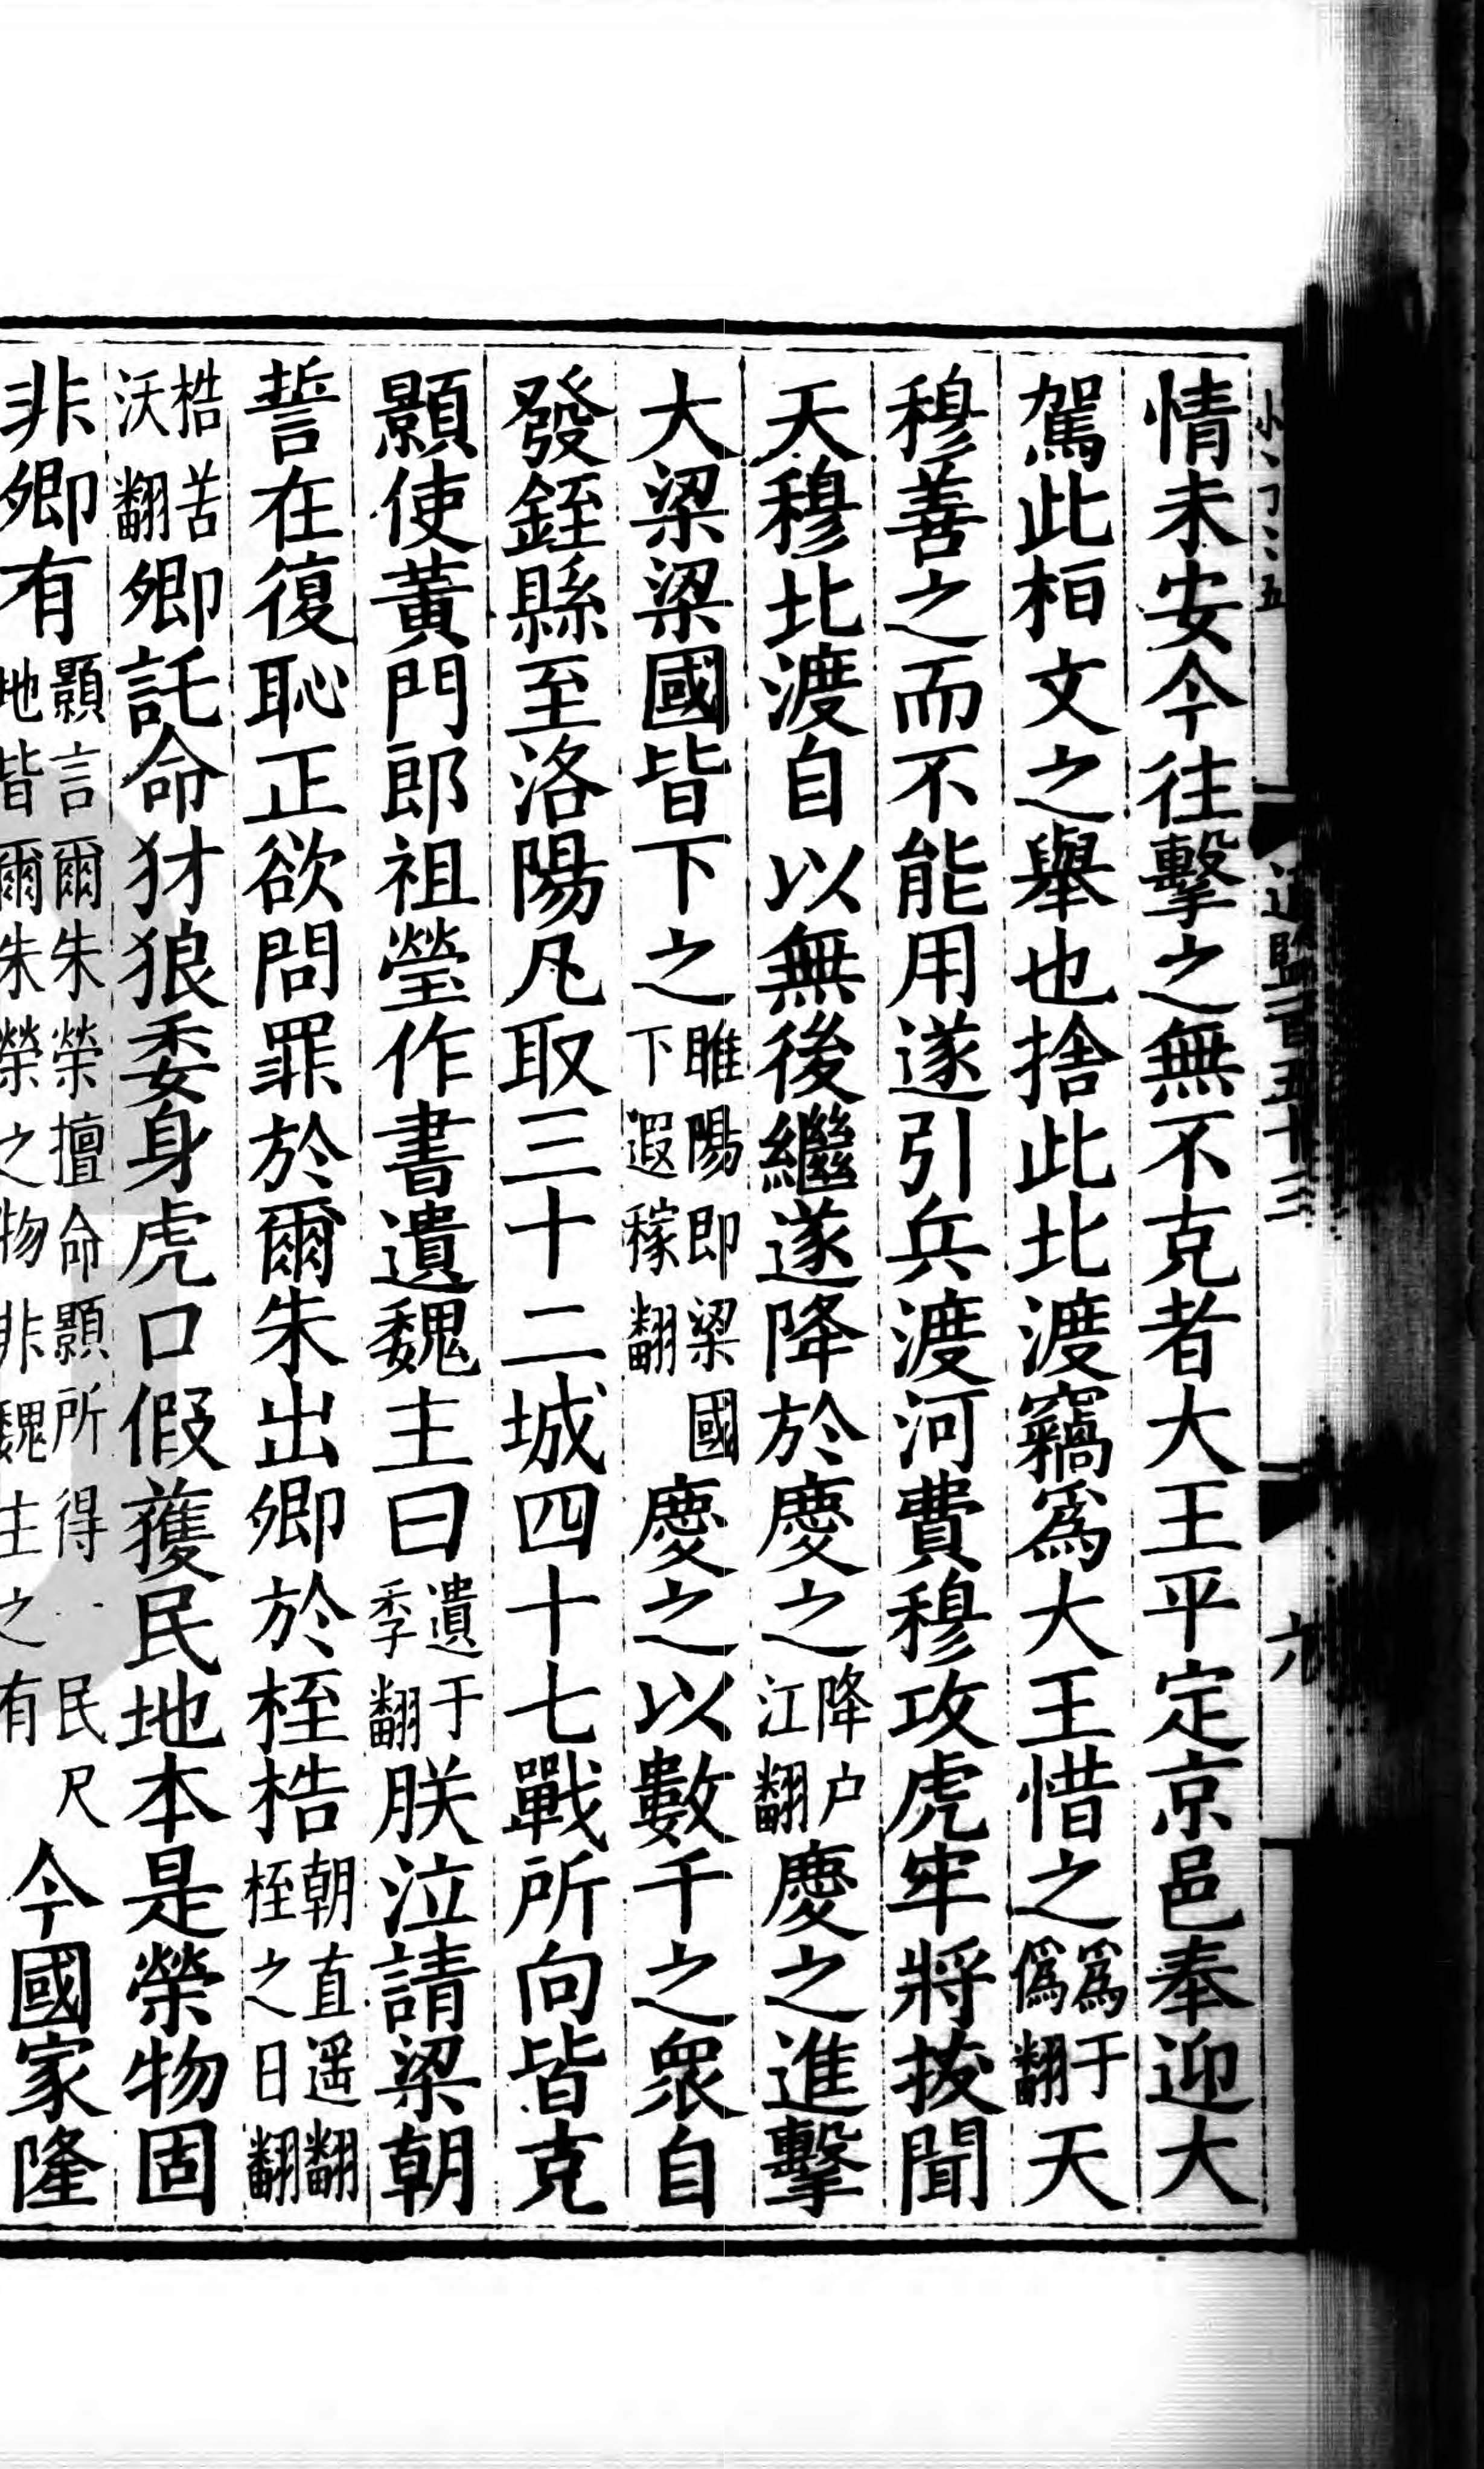 通鑑一百五十三
六
情未安今往擊之無不克者大王平定京邑奉迎大
駕此桓文之舉也捨此北渡竊爲大王惜之爲于僞翻天
穆善之而不能用遂引兵渡河費穆攻虎牢將拔聞
天穆北渡自以無後繼遂降於慶之降户江翻慶之進擊
大梁梁國皆下之睢陽即梁國下遐稼翻慶之以數千之衆自
發銍縣至洛陽凡取三十二城四十七戰所向皆克
顥使黃門郎祖瑩作書遺魏主曰遺于季翻朕泣請梁朝
誓在復恥正欲問罪於爾朱出卿於桎梏朝直遥翻桎之日翻
梏苦沃翻卿託命犲狼委身虎口假獲民地本是榮物固
非卿有顥言爾朱榮擅命顥所得民尺地皆爾朱榮之物非魏主之有今國家隆